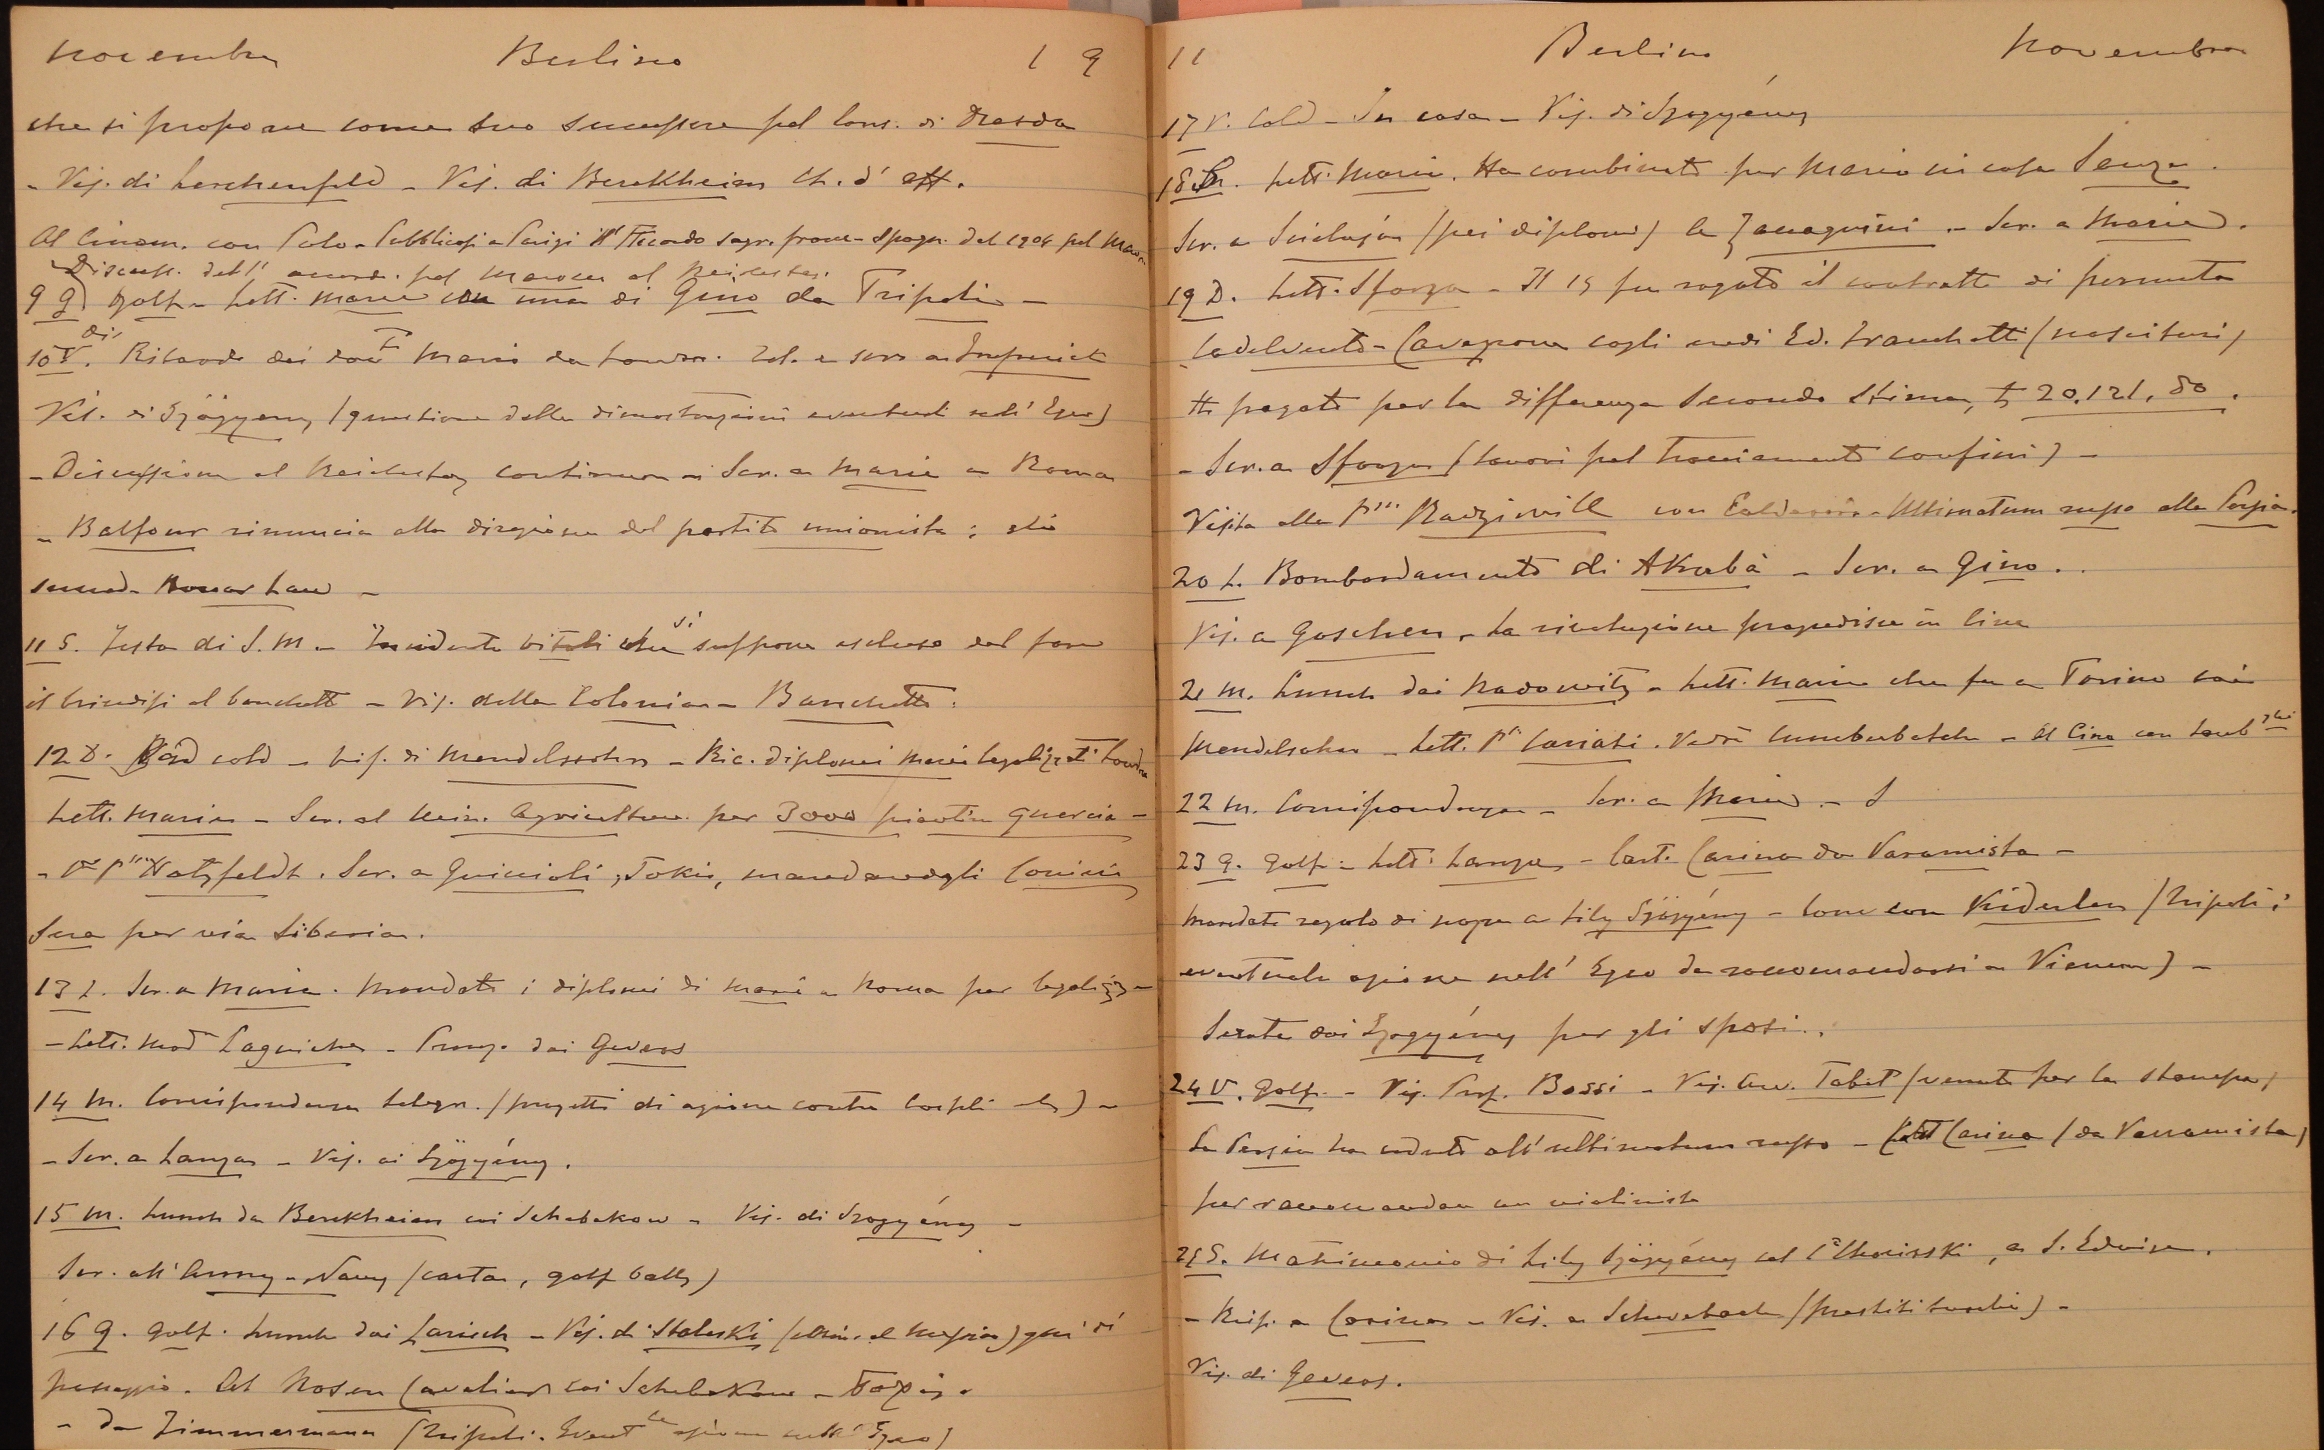 Novembre Berlino 19
che si propone come suo successore pel Cons. di Dresda
- Vis. di Lerchenfeld - Vis. di Berckheim Ch. d'aff.
Al Cinem. con Polo - Pubblicasi a Parigi l'accordo segr. franc-spagn. del 1904 pel Maroc.
Discuss. dell' accord. pel Marocco al Reichstag.
9 G. Golf - Lett. Marie con una di Gino da Tripoli -
10 V. Ritardo dei Mario da Londra.
Vis. di Szögyény (questione delle dimostrazioni eventuali nell' Egeo)
- Discussione al Reichstag continua - Scr. a Marie a Roma
- Balfour rinuncia alla direzione del partito unionista;
succed. Bonar Law -
11 S. Festa di S. M. - Incidente Vitali che si suppone escluso dal fare
il brindisi al banchetto - Vis. della Colonia - Banchetto.
12 D. Bad cold - Vis. di Mendelssohn - Ric. diplomi Mario legalizzati Londra
Lett. Marie - Scr. al Min. Agricoltura per 3000 piantine quercia -
Hatzfeldt. Scr. a Guiccioli, Tokio, mandandogli
per via Siberia.
13 L. Scr. a Marie. Mandati i diplomi di Mario a Roma per legalizz.
- Lett. Mad. Laguiche - Pranzo dai Gevers
14 M. Corrispondenza telegr. (progetti di azione contro )
- Scr. a Lanza - Vis. ai Szögyény.
15 M. Lunch da Berckheim coi Schebekow - Vis. di Szogyény -
Scr. all' Army - Navy (carta, golf balls)
16 G. Golf. Lunch dai Larisch - Vis. di Staleski qui di
passaggio. Al Rosen Cavalier coi Schebekow -
- Da Zimmermann (Tripoli. Event.le azione nell' Egeo)
11 Berlino Novembre
17 V. Cold - In casa - Vis. di Szogyény
18 S. Lett. Marie. Ha combinato per Mario in casa
Scr. a (pei diplomi) la Zannoni. - Scr. a Marie.
19 D. Lett. Sforza - Il 15 fu rogato il contratto di permuta
Cadelvento - Cavazzone cogli eredi Ed. Franchetti (nascituri)
Ho pagato per la differenza secondo stima, £ 20.121,80.
- Scr. a Sforza (lavori pel tracciamento confini) -
Visita alla P.ssa Radziwill con - Ultimatum russo alla Persia.
20 L. Bombardamento di Akabà - Scr. a Gino.
Vis. a Goschen. La rivoluzione progredisce in Cina
21 M. Lunch dai Radowitz - Lett. Marie che fu a Torino coi
Mendelssohn - Lett. P.ssa Cariati. Vedrò - Al Cine con
22 M. Corrispondenza - Scr. a Marie. - S
23 G. Golf - Lett. Lanza - Cart. Carina da Varramista -
Mandato regalo di nozze a Lily Szögyény - Conv. con Kiderlen (Tripoli;
eventuale azione nell' Egeo da raccomandarsi a Vienna) -
Serata dai Szogyény per gli sposi.
24 V. Golf. - Vis. Prof. Bossi - Vis. Avv. Tabet (venuto per la stampa)
La Persia ha ceduto all'ultimatum russo - Lett. Carina (da Varramista)
per raccomandare un violinista
25 S. Matrimonio di Lily Szögyény col C.te Chorinski, a S. Edwige.
- Risp. a Carina - Vis. a Schwabach (prestiti turchi) -
Vis. di Gevers.